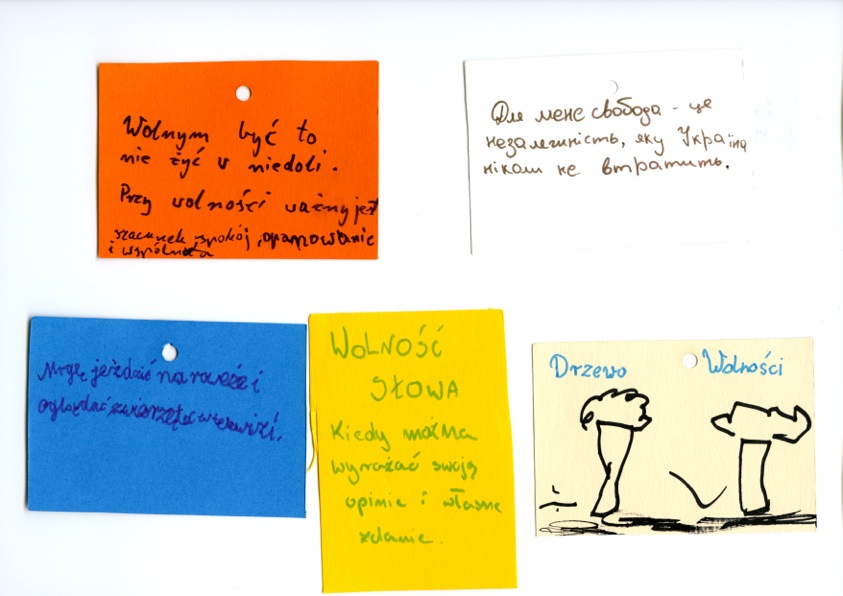 Wolnym być to
nie żyć v niedoli.
Przy volności važny jest
szacunek, spokój, opanowanie
i wspólnota
Для мене свобода - це
незалежність, яку Україна
ніколи не втратить.
Mogę jeździć na rowerze i
oglądać zwierzęta w telewizji.
WOLNOŚĆ
SŁOWA
Kiedy można
wyrażać swoją
opinie i własne
zdanie.
Drzewo Wolności